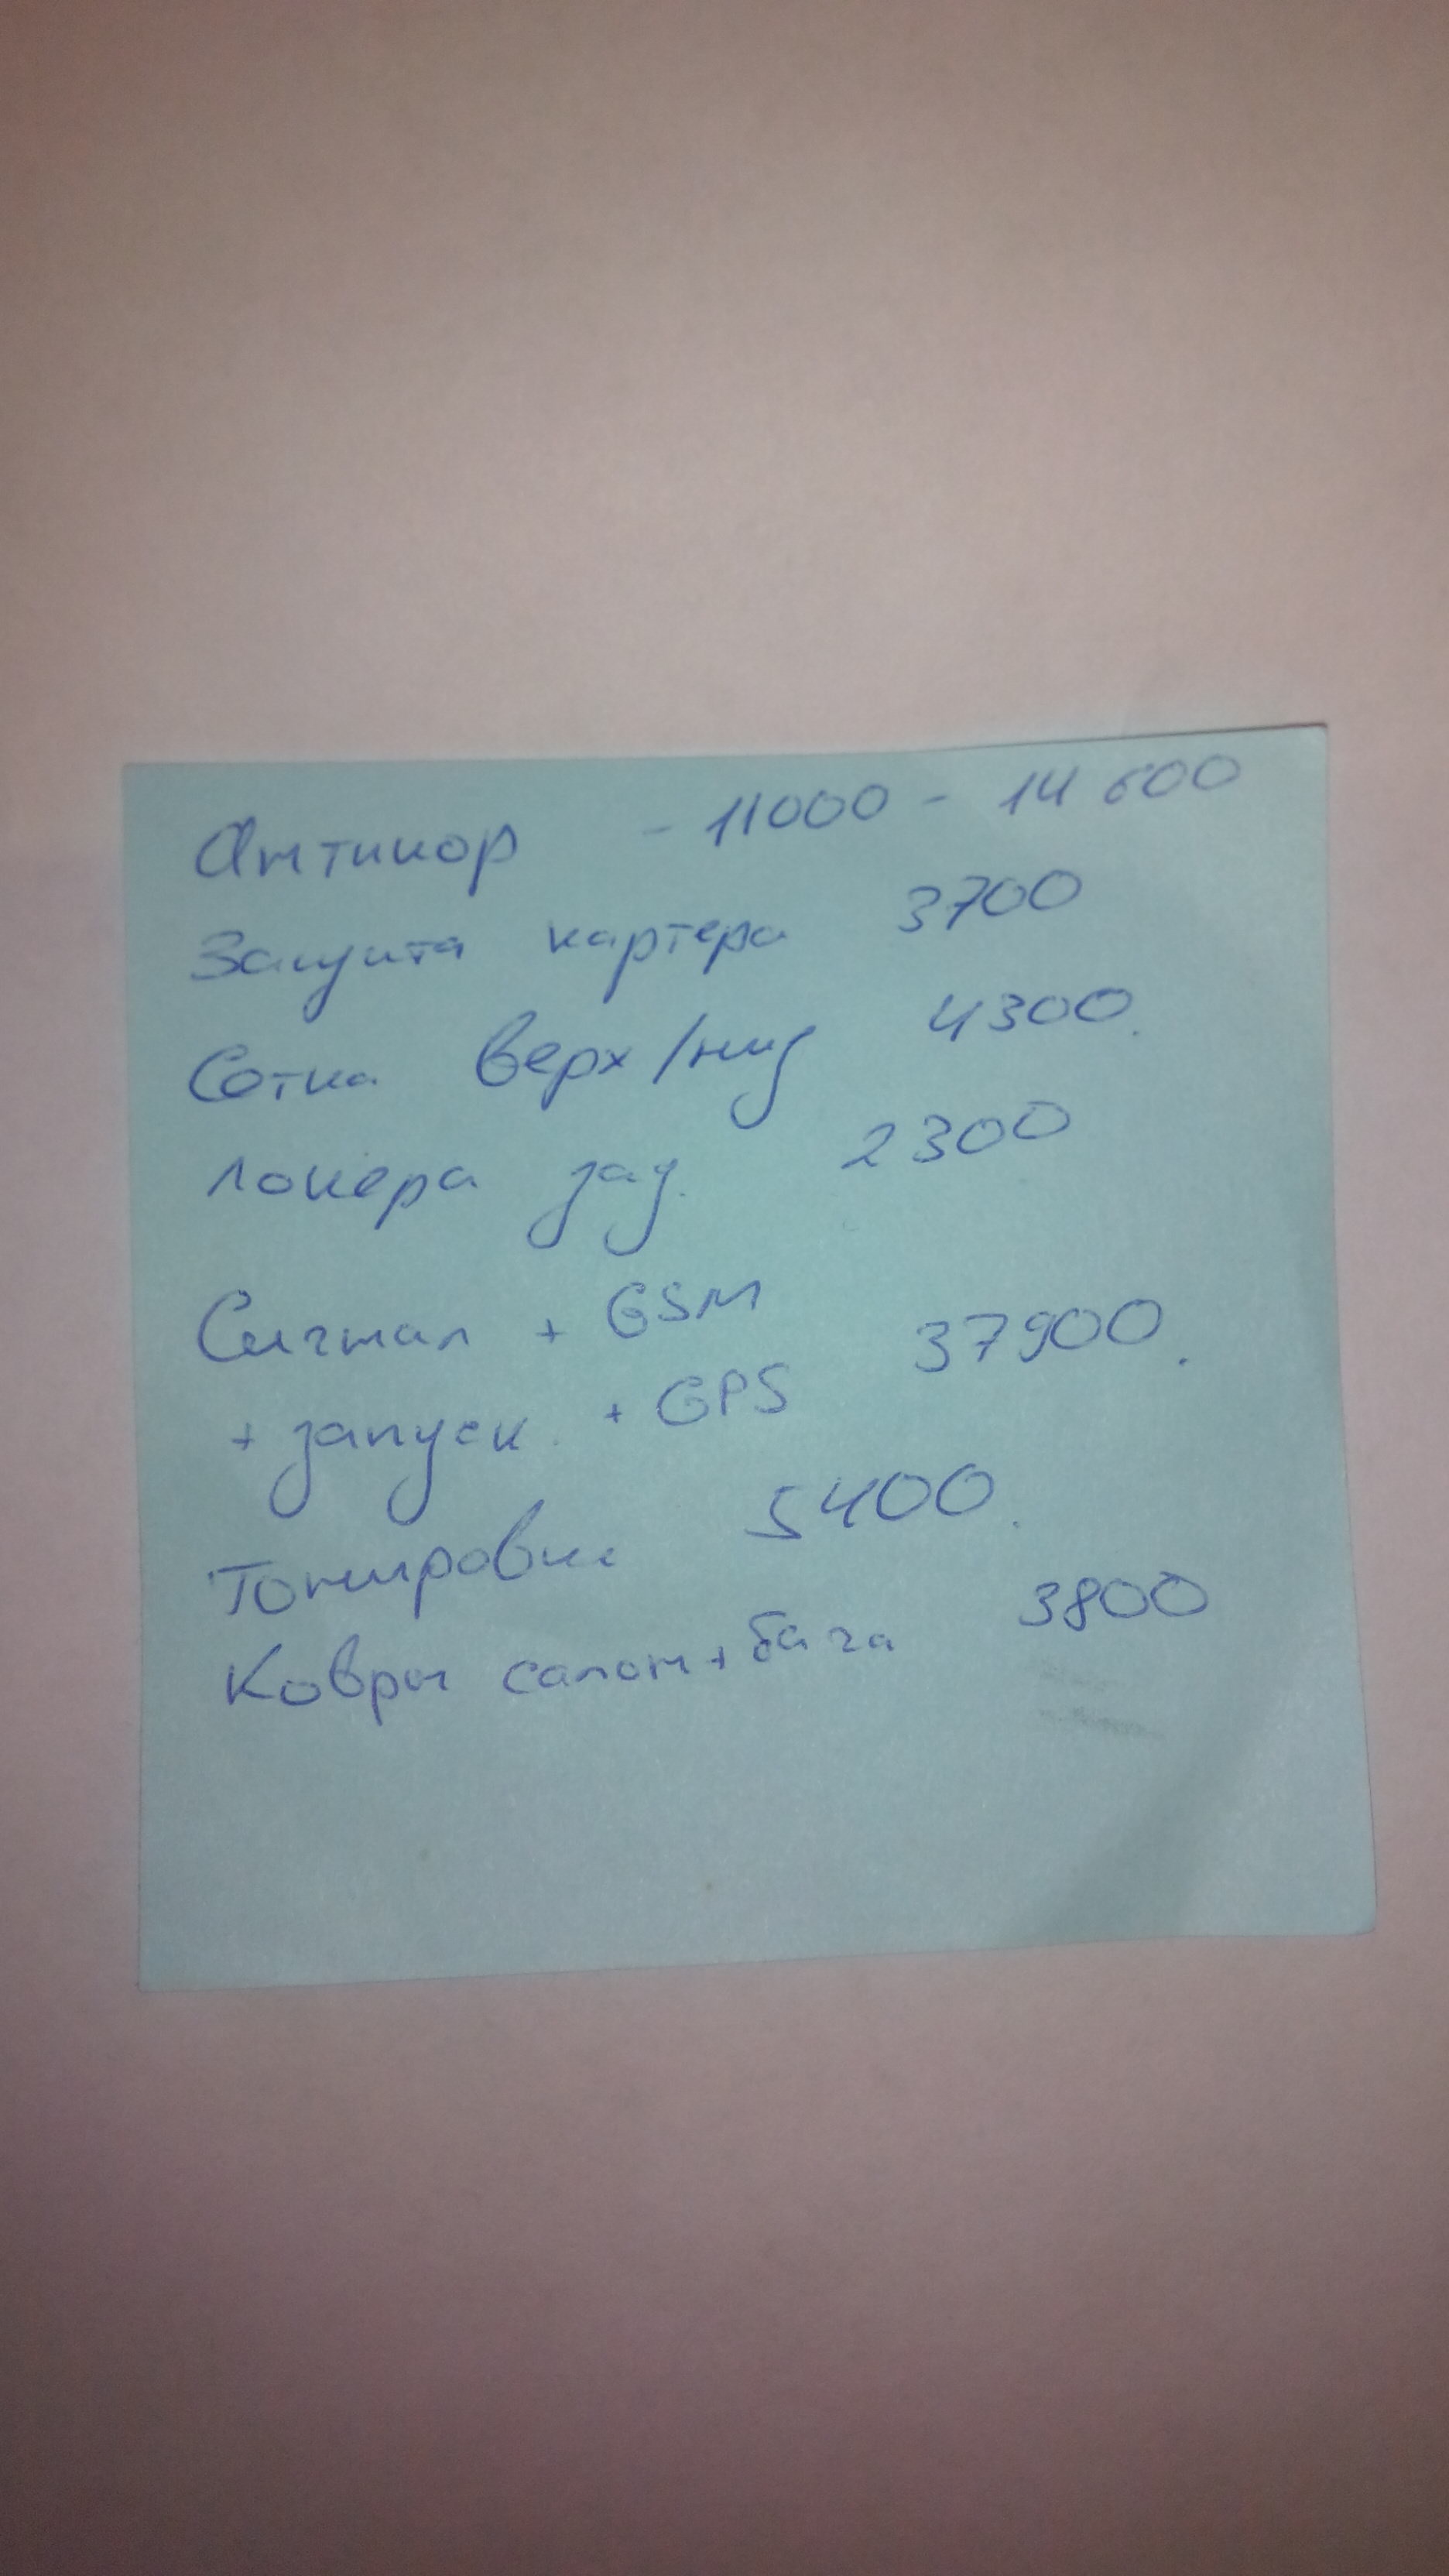 Антикор - 11000 - 14 600
Защита картера 3700
Сотка верх/низ 4300.
локера зад. 2300
Сигнал + GSM
+ запуск. + GPS 37900.
Тонировка 5400.
Ковры салон + бага 3800